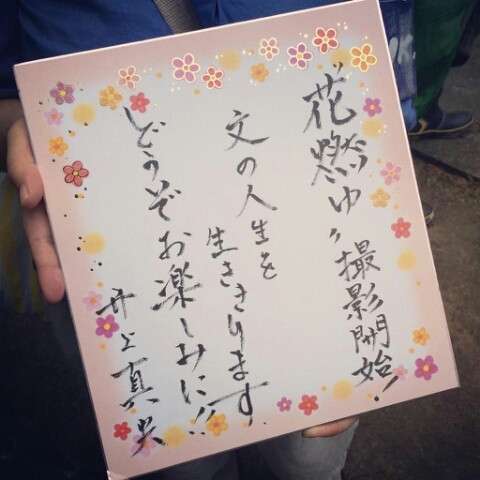 "花燃ゆ"撮影開始!
文の人生を
生ききります。
どうぞお楽しみに!!
井上真央